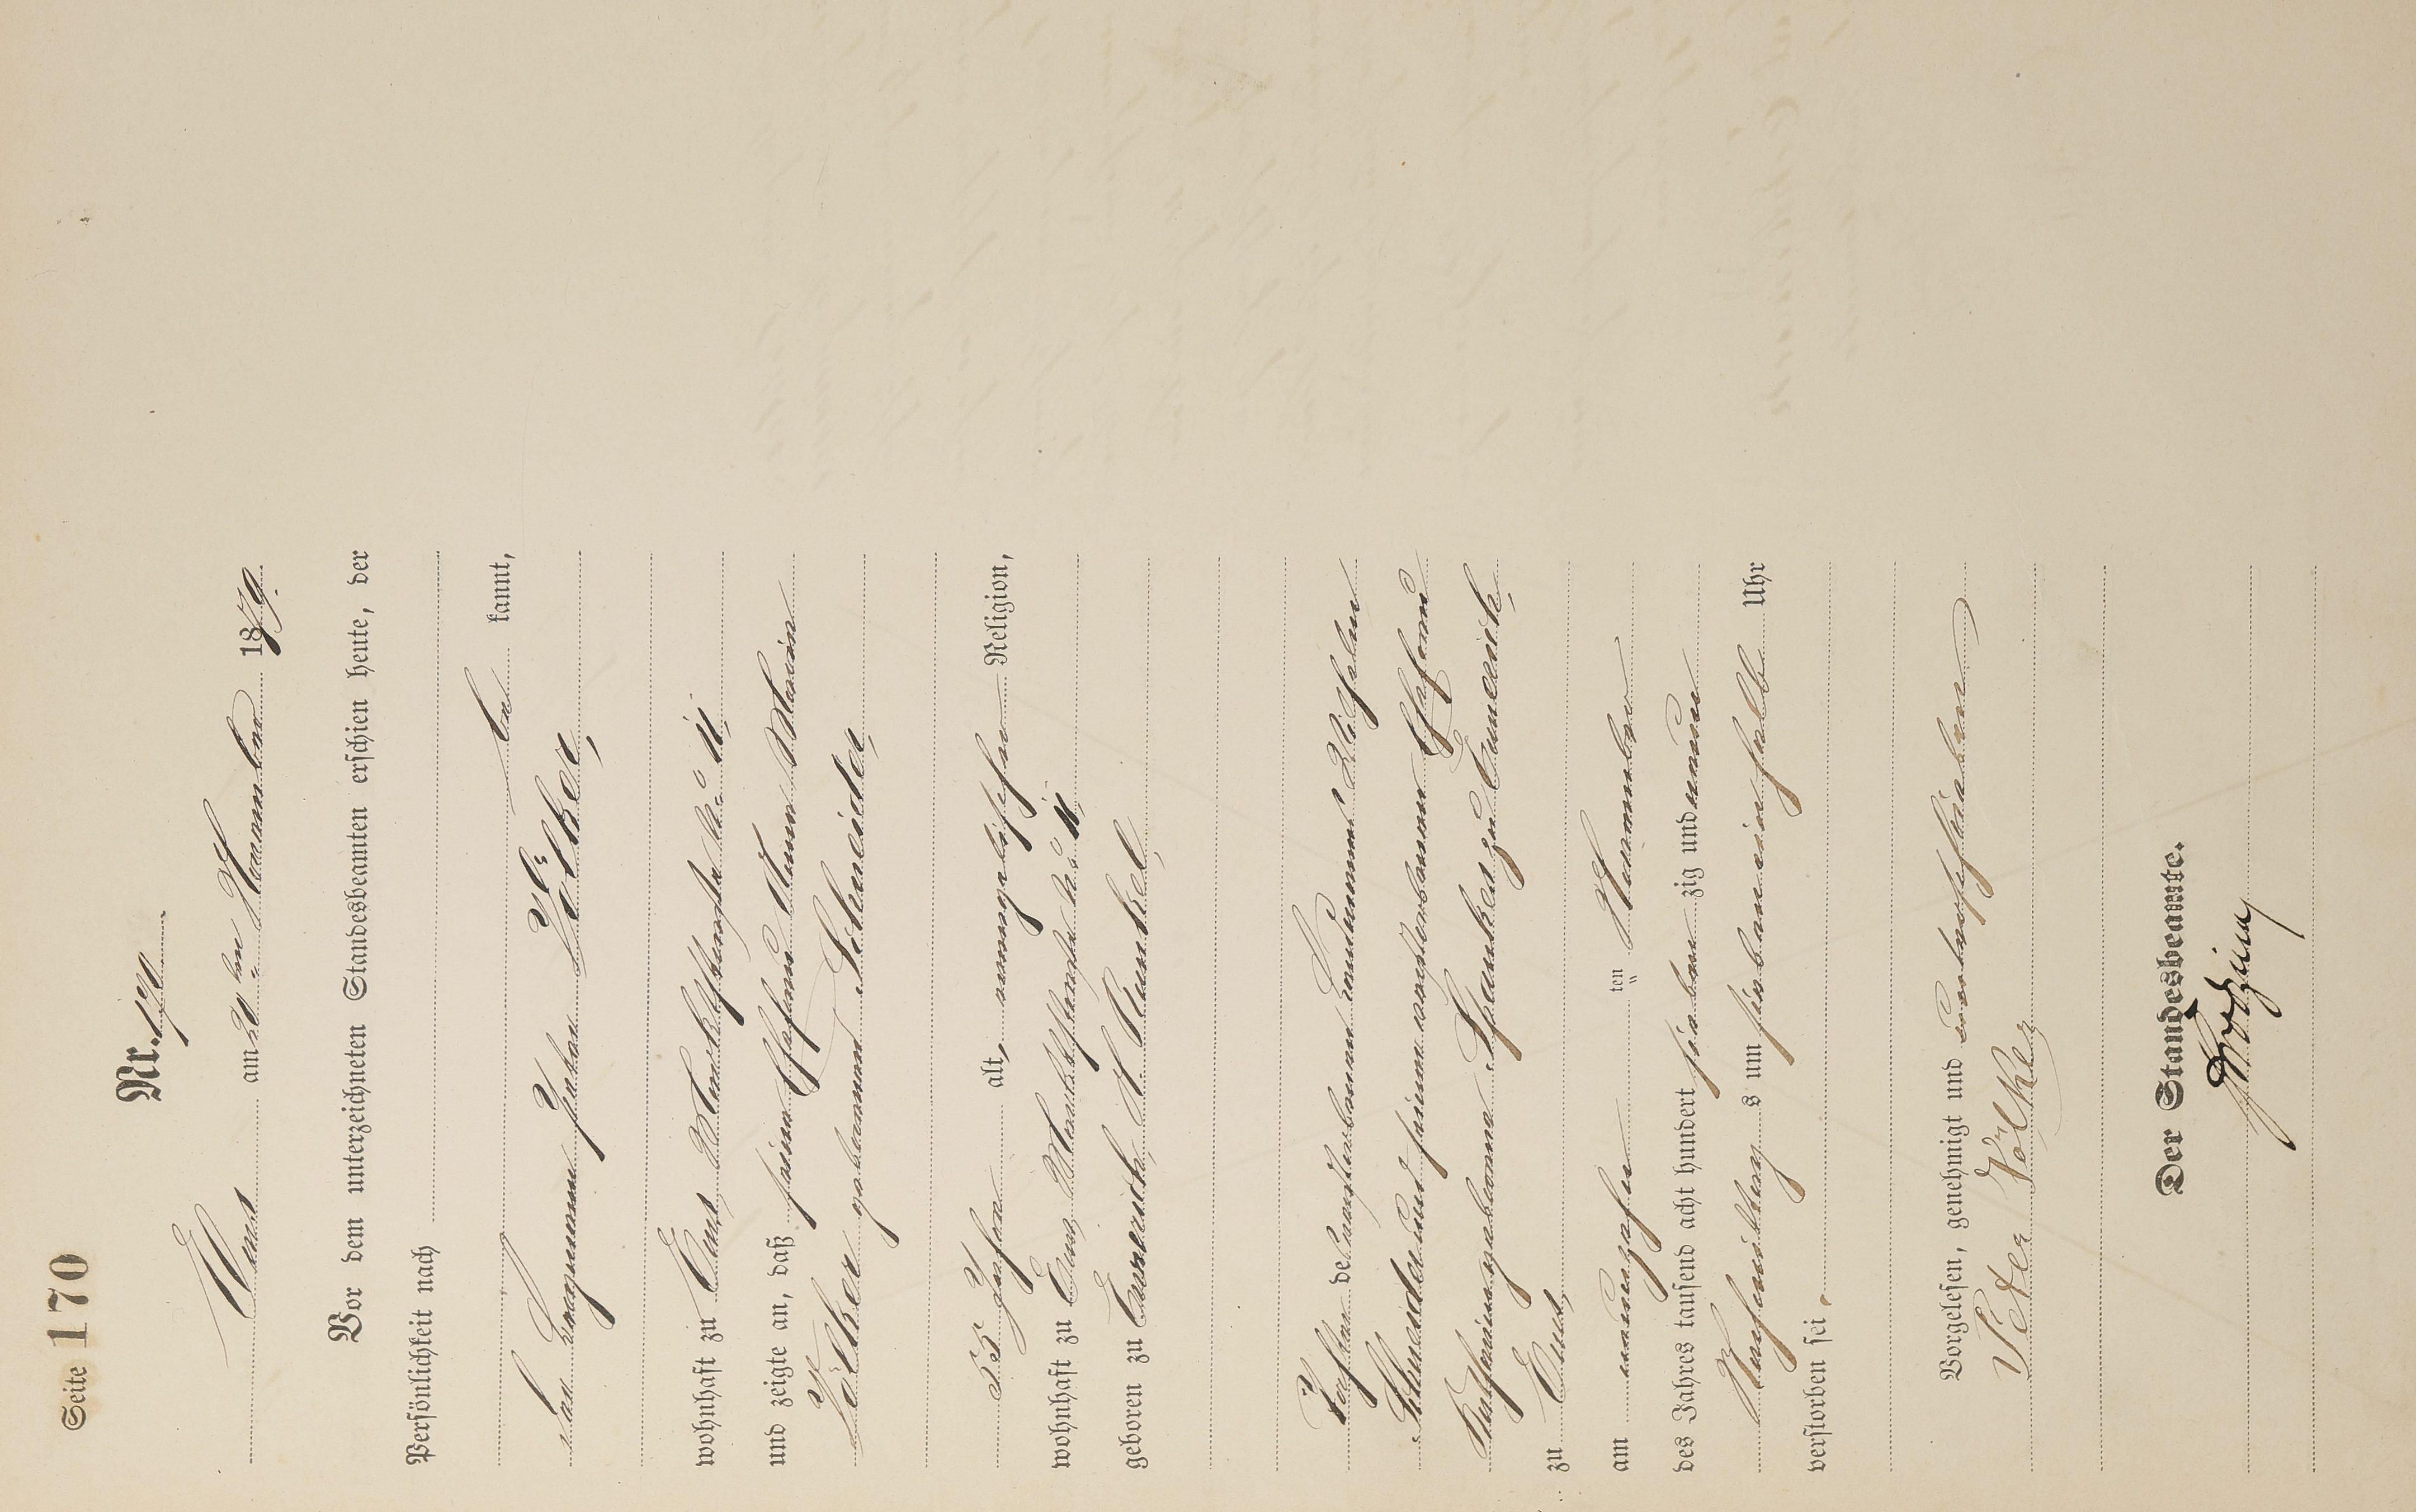 Seite 170
Nr. 170
Ems am 20ten November 1879.
Vor dem unterzeichneten Standesbeamten erschien heute, der
Persönlichkeit nach
be kannt,
der Bergmann Peter Völker,
wohnhaft zu Ems, Marktstraße No. 11,
und zeigte an, daß seine Ehefrau Anna Maria
Völker geborene Schneider,
55 Jahre alt, evangelischer Religion,
wohnhaft zu Ems, Marktstraße No. 11,
geboren zu Emmerich, A. Runkel,
Tochter des verstorbenen
Schneider und seiner verstorbenen Ehefrau
geborene zu Emmerich,
zu Ems,
am neunzehnten November
des Jahres tausend acht hundert siebenzig und neun
Nachmittags um sieben einhalb Uhr
verstorben sei.
Vorgelesen, genehmigt und unterschrieben
Peter Völker
Der Standesbeamte.